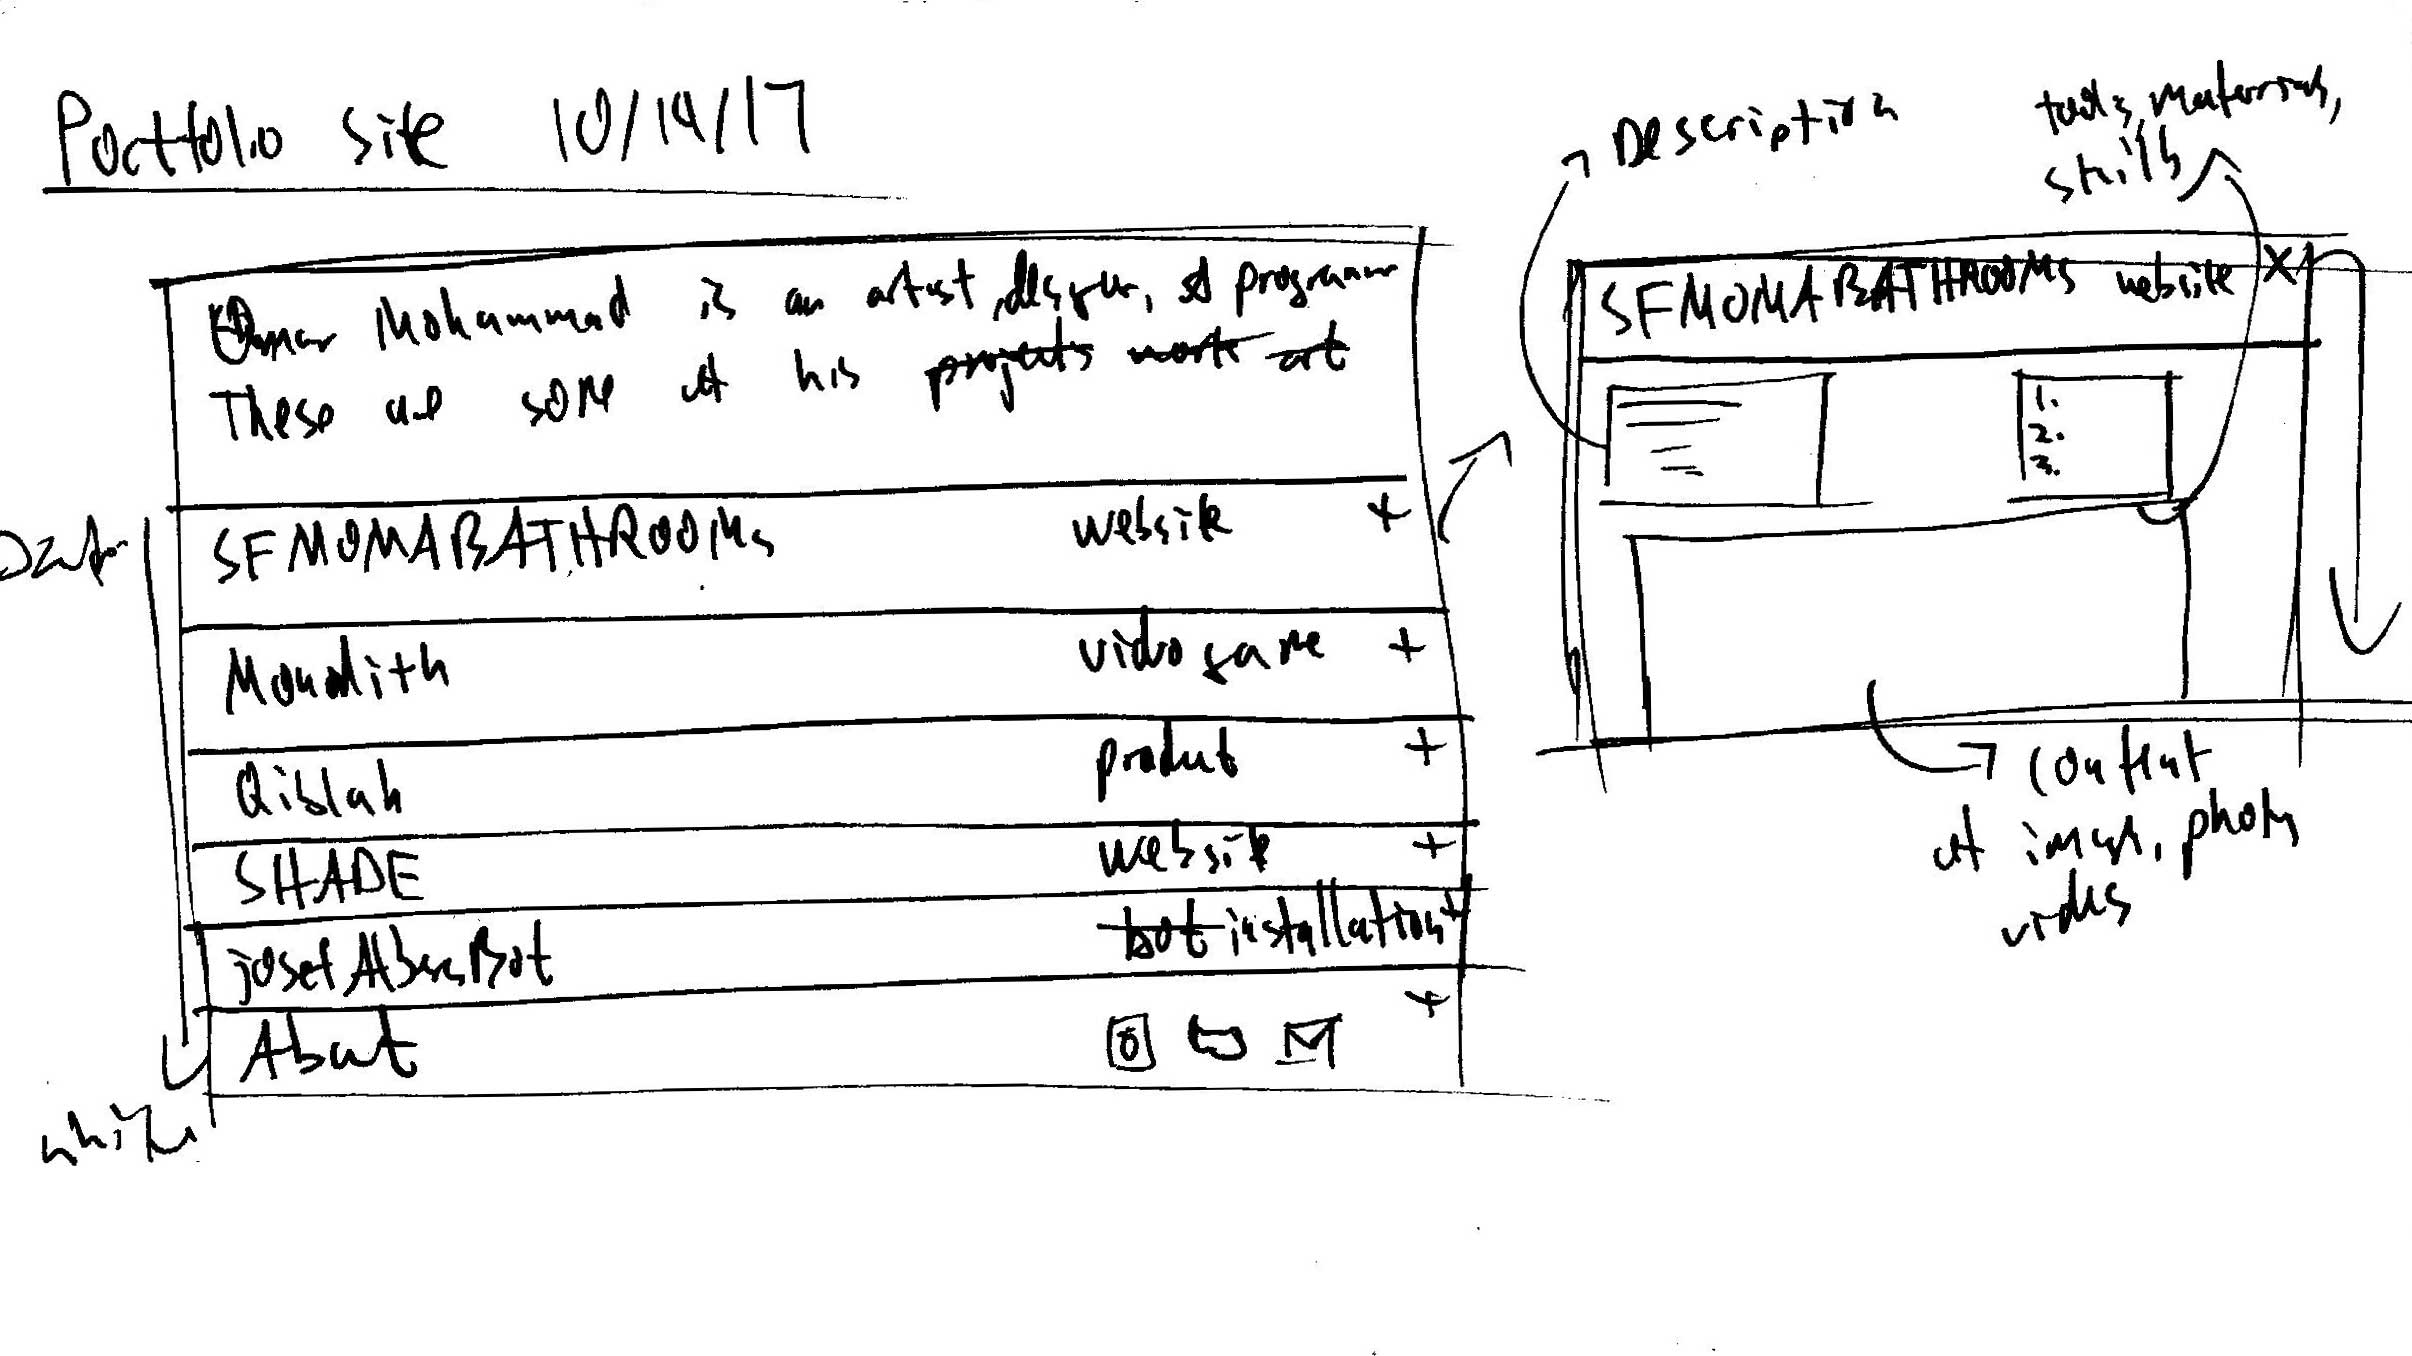 Portfolio site 10/14/17
Omar Mohammad is an artist, designer, programmer
These are some of his projects work art
SFMOMABATHROOMs website +
Monolith video game +
Qiblah product +
SHADE website +
josefAlbersBot bot installation +
About +
Description
tools, materials,
skills
SFMOMABATHROOMS website X
1.
2.
3.
content
of images, photos,
videos